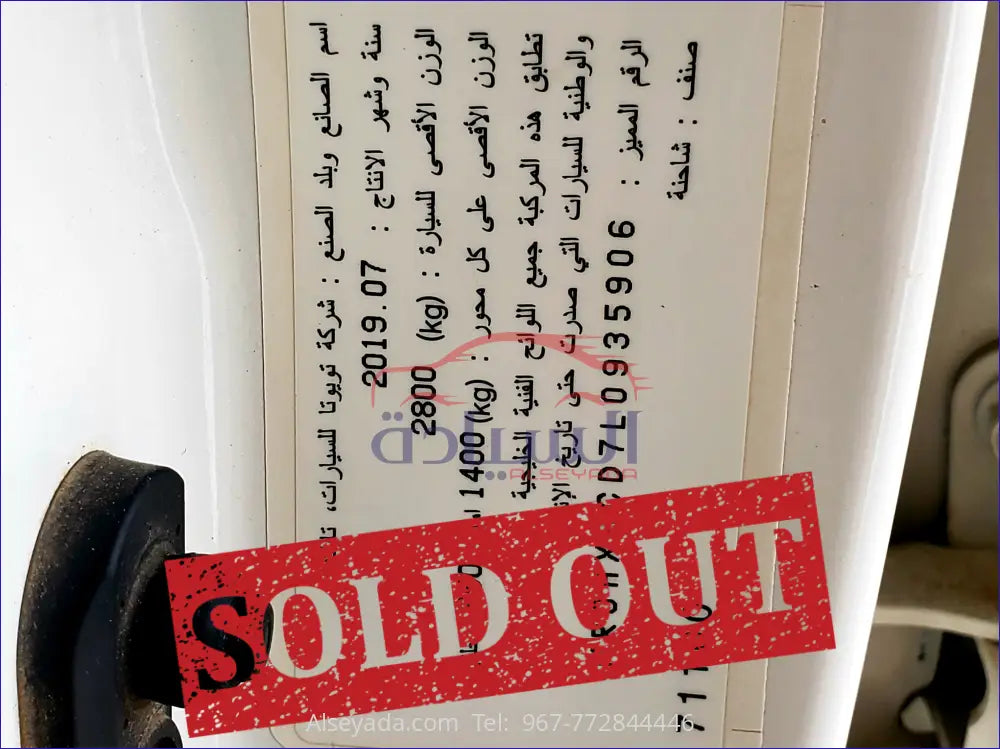 اسم الصانع وبلد الصنع : شركة تويوتا للسيارات،
سنة وشهر الانتاج : 2019.07
الوزن الأقصى للسيارة : (kg) 2800
الوزن الأقصى على كل محور : (kg) 1400
تطابق هذه المركبة جميع اللوائح الفنية الخليجية
والوطنية للسيارات التي صدرت حتى تاريخ
الرقم المميز : CD7L0935906
صنف : شاحنة
السيادة
ALSEYADA
SOLD OUT
Alseyada.com Tel: 967-772844446